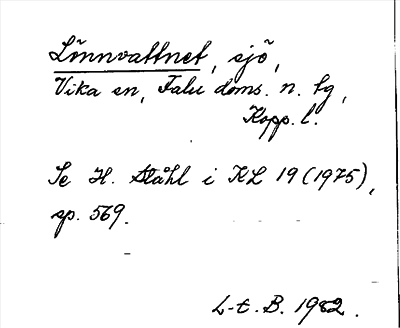 Lönnvattnet, sjö,
Vika sn, Falu doms. n. tg,
Kopp. l.
Se H. Ståhl i KL 19 (1975),
sp. 569.
L-t. B. 1982.